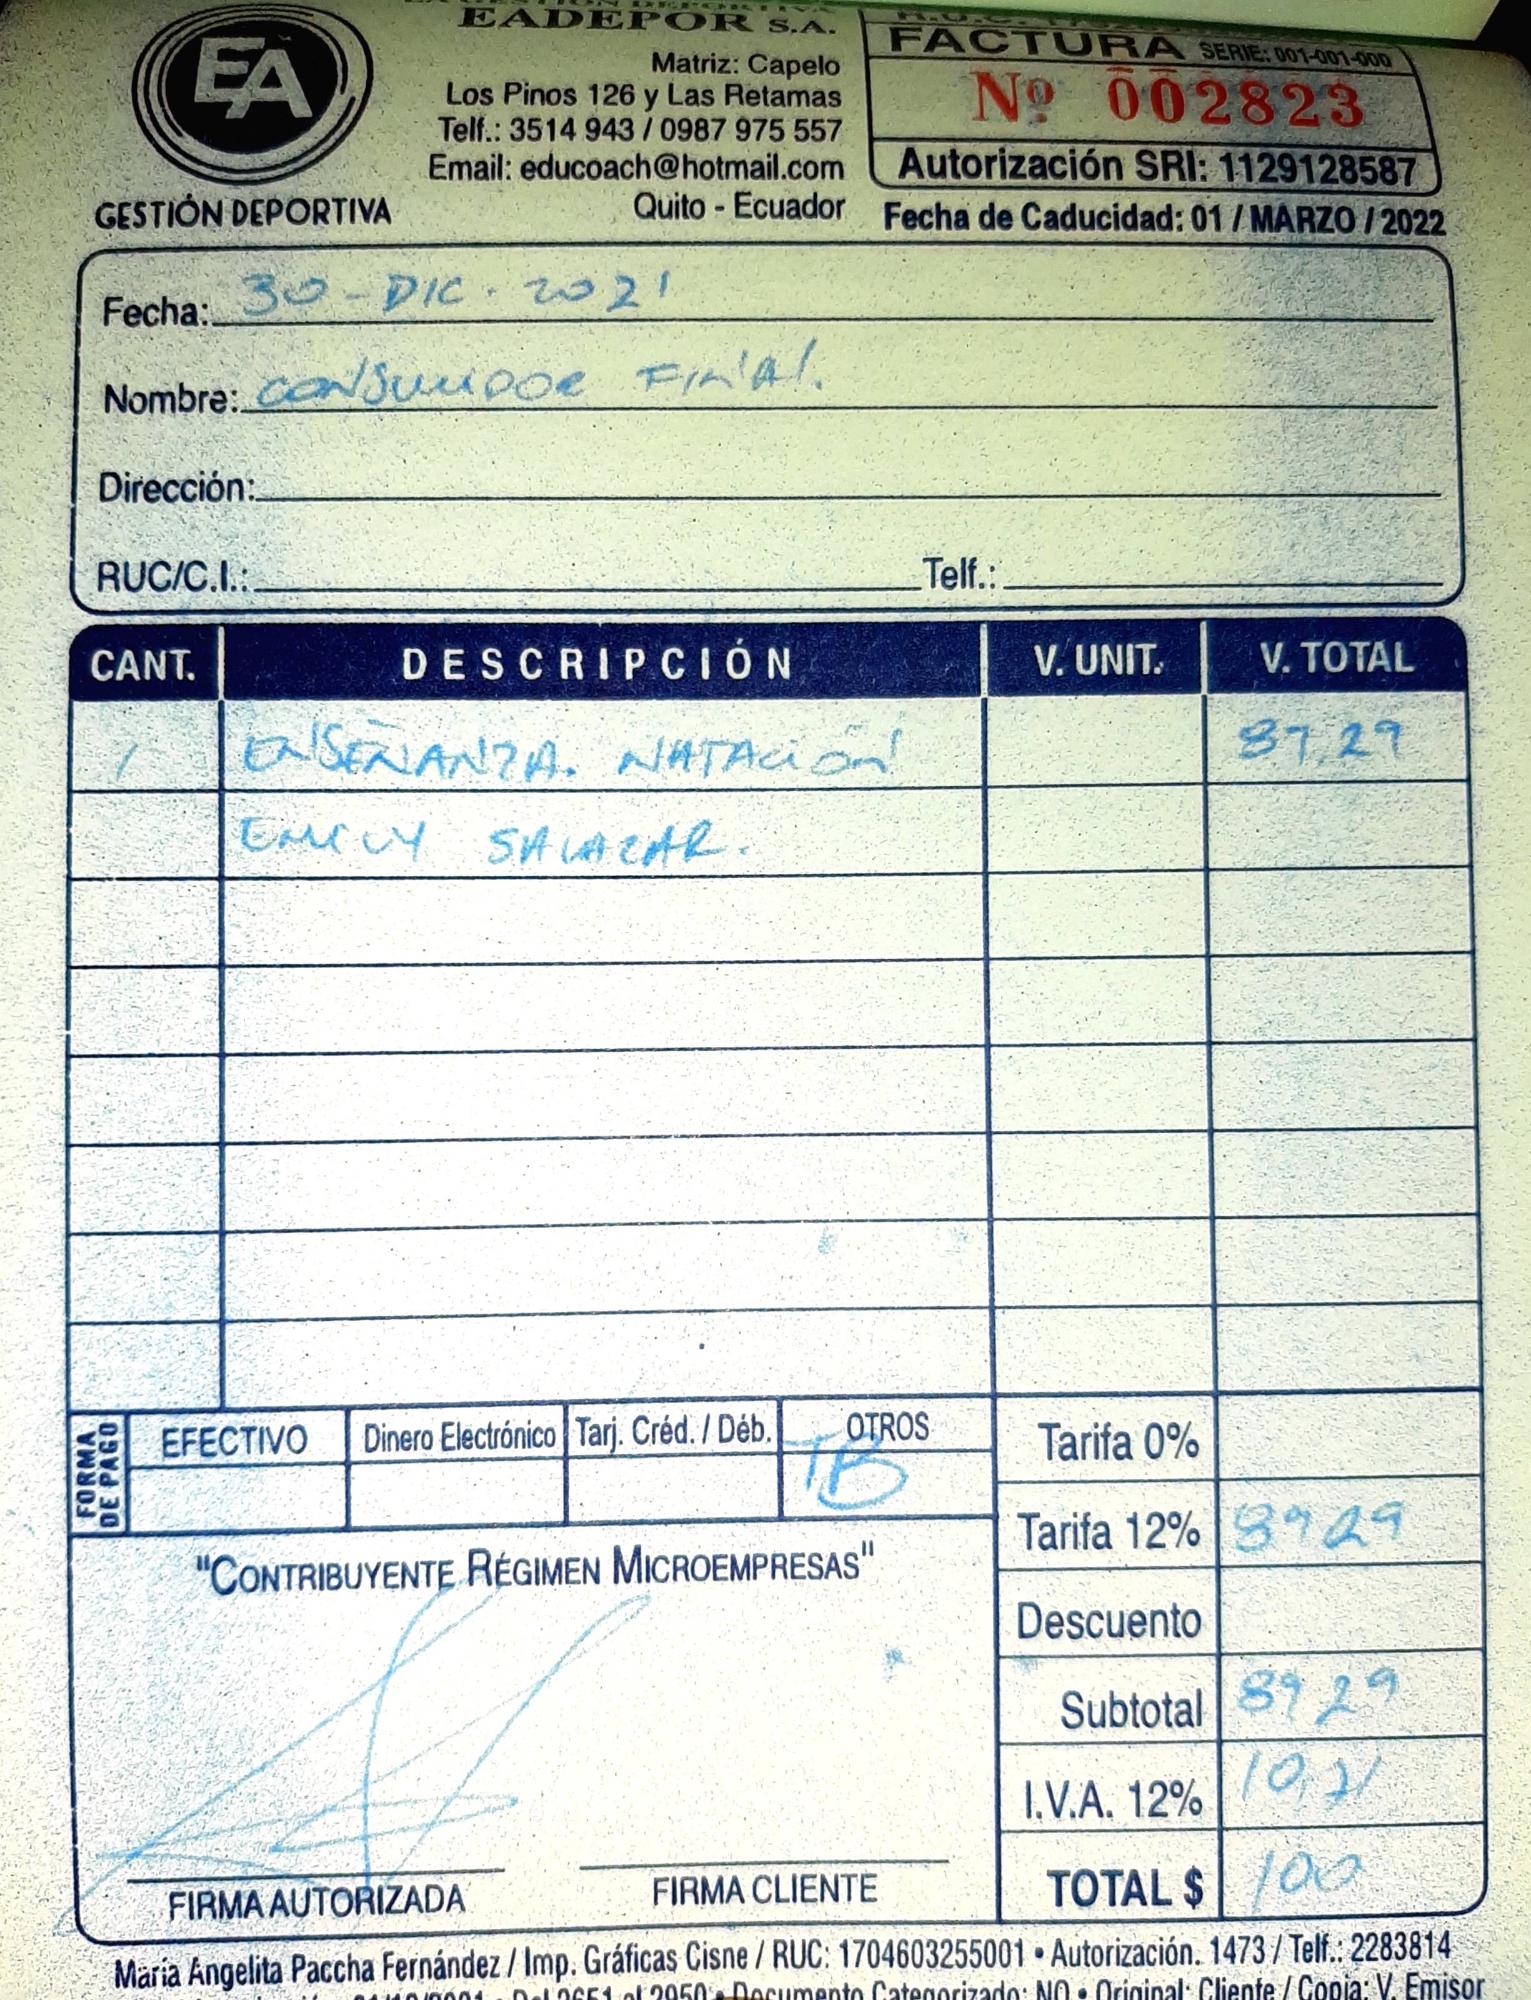 EA
GESTIÓN DEPORTIVA
EADEPOR S.A.
Matriz: Capelo
Los Pinos 126 y Las Retamas
Telf.: 3514 943 / 0987 975 557
Email: educoach@hotmail.com
Quito - Ecuador
FACTURA SERIE: 001-001-000
Nº 002823
Autorización SRI: 1129128587
Fecha de Caducidad: 01 / MARZO / 2022
Fecha: 30 - DIC. 2021
Nombre: CONSUMIDOR FINAL.
Dirección:
RUC/C.I.: Telf.:
CANT. DESCRIPCIÓN V. UNIT. V. TOTAL
1 ENSEÑANZA. NATACIÓN 89,29
EMILY SALAZAR.
FORMA DE PAGO EFECTIVO Dinero Electrónico Tarj. Créd. / Déb. OTROS
TB
Tarifa 0%
Tarifa 12% 89 29
Descuento
Subtotal 89 29
I.V.A. 12% 10,71
TOTAL $ 100
"CONTRIBUYENTE RÉGIMEN MICROEMPRESAS"
FIRMA AUTORIZADA FIRMA CLIENTE
María Angelita Paccha Fernández / Imp. Gráficas Cisne / RUC: 1704603255001 • Autorización. 1473 / Telf.: 2283814
Del 2651 al 2950 • Documento Categorizado: NO • Original: Cliente / Copia: V. Emisor